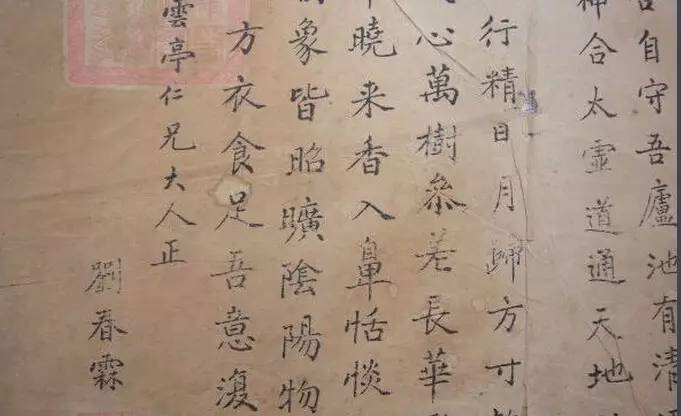 自守吾廬池有清
神合太虛道通天地
行精日月歸方寸
心萬樹參差長華
曉来香入鼻恬惔
象皆昭曠陰陽物
方衣食足吾意復
雲亭仁兄大人正
劉春霖